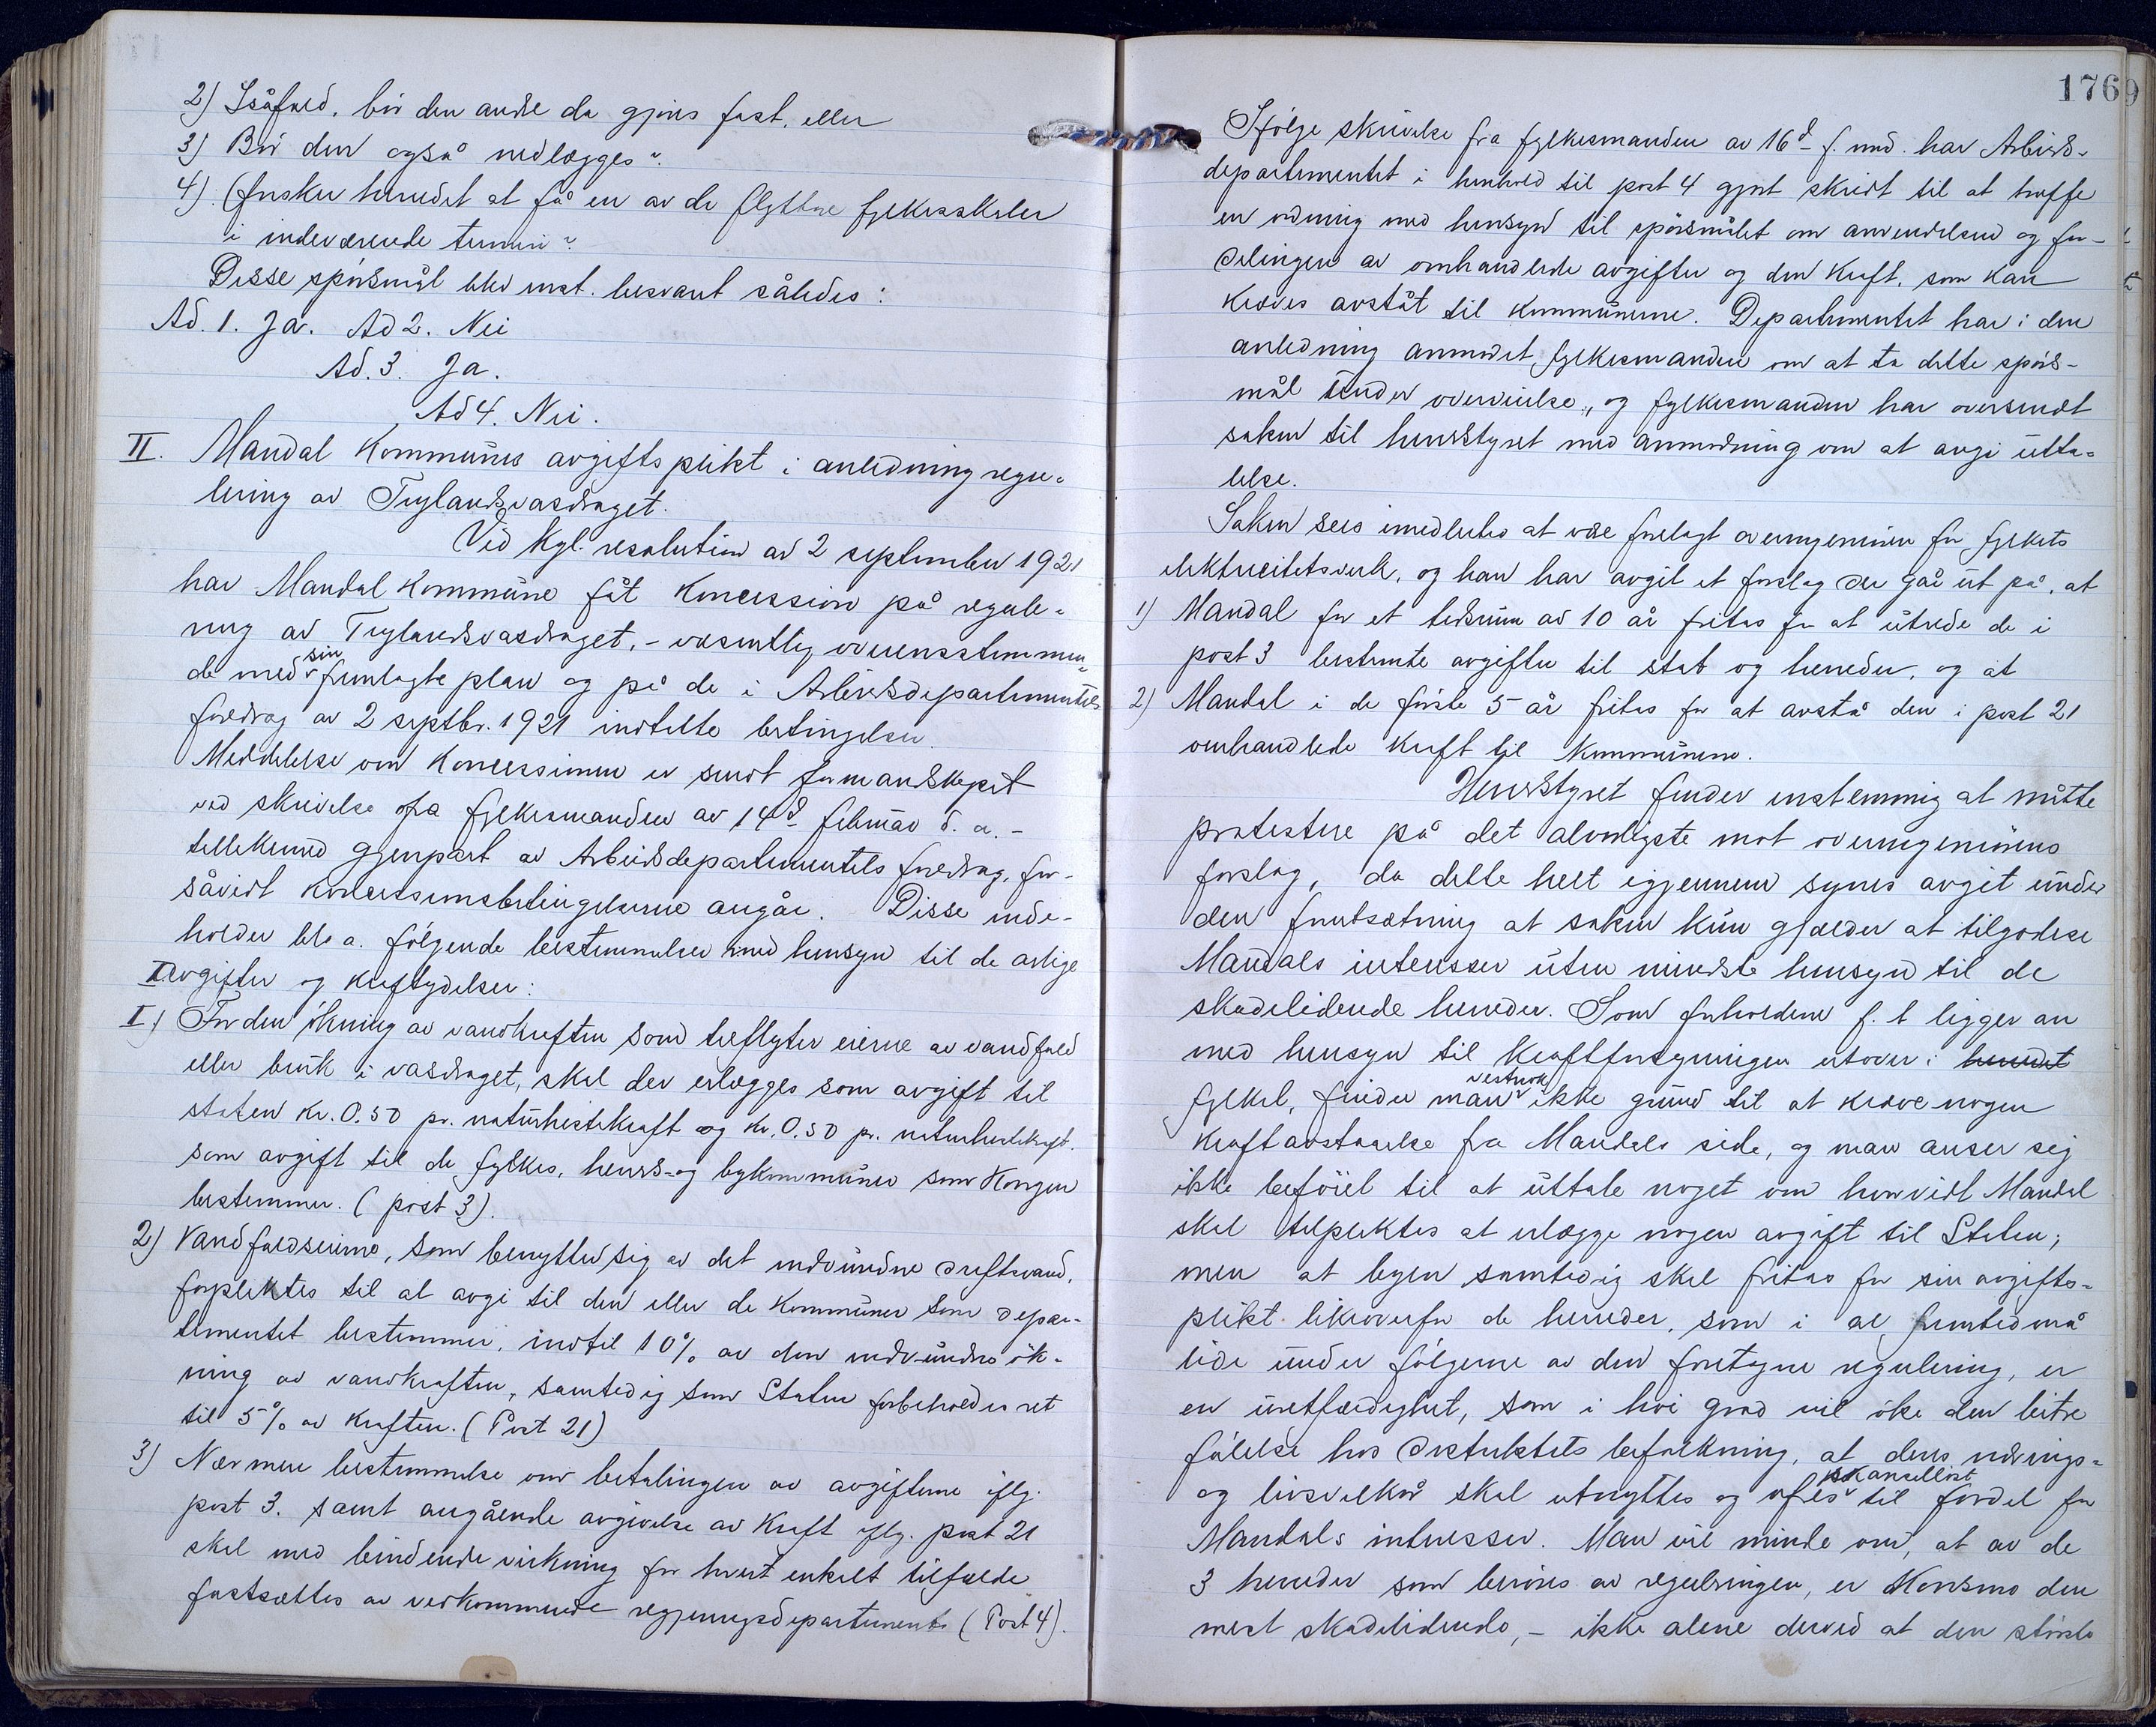 2) Isåfald, bør den andre da gjøres fast, eller
3) Bør den også nedlægges?
4). Ønsker herredet at få en av de flyttbare fylkesskoler
i indeværende termin?
Disse spørsmål blev enst. besvart således:
Ad. 1. Ja. Ad 2. Nei
Ad. 3. Ja.
Ad 4. Nei.
II. Mandal kommunes avgiftsplikt i anledning regu-
lering av Tryland­svasdraget.
Ved kgl. resolution av 2 september 1921
har Mandal kommune fåt koncession på regule-
ring av Trylandsvasdraget, - væsentlig overensstemmen-
de med sin fremlagte plan og på de i Arbeidsdepartementets
foredrag av 2 septbr. 1921 indtatte betingelser.
Meddelelse om koncessionen er sendt formandskapet
ved skrivelse fra fylkesmanden av 14d februar d. a. -
tillikemed gjenpart av Arbeidsdepartementets foredrag, for-
såvidt koncessionsbetingelserne angår. Disse inde-
holder bl. a. følgende bestemmelser med hensyn til de årlige
avgifter og kraftydelser:
I) For den økning av vandkraften som tilflyter eierne av vandfald
eller bruk i vasdraget, skal der erlægges som avgift til
staten kr. 0.50 pr. naturhestekraft og kr. 0.50 pr. naturhestekraft.
som avgift til de fylkes, herreds- og bykommuner som Kongen
bestemmer. (post 3).
2) Vandfaldseierne, som benytter sig av det indvundne driftsvand,
forpliktes til at avgi til den eller de kommuner som depar-
tementet bestemmer, indtil 10% av den indvundne øk-
ning av vandkraften, samtidig som Staten forbeholdes ret
til 5% av kraften. (Post 21)
3) Nærmere bestemmelse om betalingen av avgifterne iflg.
post 3. samt angående avgivelse av kraft iflg. post 21
skal med bindende virkning for hvert enkelt tilfælde
fastsættes av vedkommende regjeringsdepartement (Post 4).
1769
Ifølge skrivelse fra fylkesmanden av 16d f. md. har Arbeids-
departementet i henhold til post 4 gjort skridt til at træffe
en ordning med hensyn til spørsmålet om anvendelsen og for-
delingen av omhandlede avgifter og den kraft, som kan
kræves avståt til kommunerne. Departementet har i den
anledning anmodet fylkesmanden om at ta dette spørs-
mål under overveielse, og fylkesmanden har oversendt
saken til herredstyret med anmodning om at avgi utta-
lelse.
Saken sees imedlertid at være forelagt overingeniøren for fylkets
elektricitetsverk, og han har avgit et forslag der går ut på, at
1) Mandal for et tidsrum av 10 år fritas for at utrede de i
post 3 bestemte avgifter til stat og herreder, og at
2) Mandal i de første 5 år fritas for at avstå den i post 21
omhandlede kraft til kommunerne.
Herredstyret finder enstemmig at måtte
protestere på det alvorligste mot overingeniørens
forslag, da dette helt igjennem synes avgit under
den forutsætning at saken kun gjælder at tilgodese
Mandals interesser uten mindste hensyn til de
skadelidende herreder. Som forholdene f. t ligger an
med hensyn til kraftforsyningen utover i herredet
fylket, finder man vistnok ikke grund til at kræve nogen
kraftavståelse fra Mandals side, og man anser sig
ikke beføiet til at uttale noget om hvorvidt Mandal
skal tilpliktes at erlægge nogen avgift til Staten;
men at byen samtidig skal fritas for sin avgifts-
plikt likeoverfor de herreder, som i al fremtid må
lide under følgerne av den foretagne regulering, er
en uretfærdighet, som i høi grad vil øke den bitre
følelse hos distriktets befolkning, at dens nærings-
og livsvilkår skal utnyttes og ofres skånselløst til fordel for
Mandals interesser. Man vil minde om, at av de
3 herreder som berøres av reguleringen, er Konsmo den
mest skadelidende, - ikke alene derved at den største